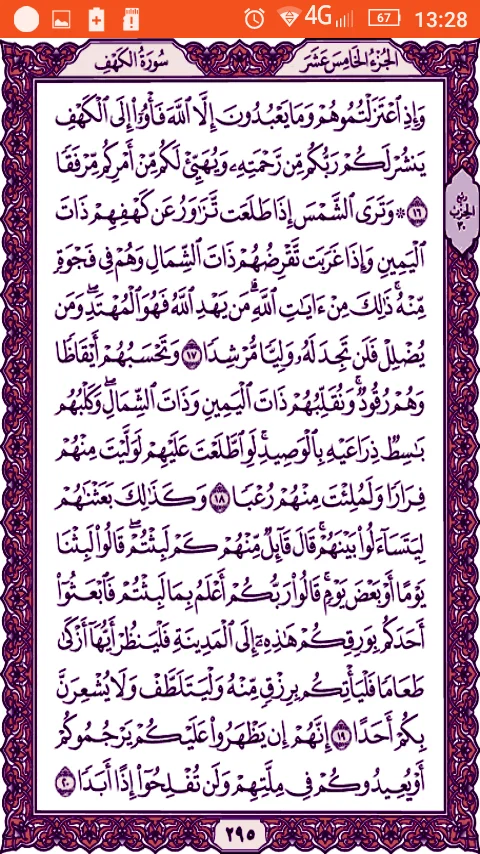 4G 67 13:28
الجزء الخامس عشر سورة الكهف
وَإِذِ ٱعۡتَزَلۡتُمُوهُمۡ وَمَا يَعۡبُدُونَ إِلَّا ٱللَّهَ فَأۡوُۥٓاْ إِلَى ٱلۡكَهۡفِ
يَنشُرۡ لَكُمۡ رَبُّكُم مِّن رَّحۡمَتِهِۦ وَيُهَيِّئۡ لَكُم مِّنۡ أَمۡرِكُم مِّرۡفَقٗا
١٦ ۞ وَتَرَى ٱلشَّمۡسَ إِذَا طَلَعَت تَّزَٰوَرُ عَن كَهۡفِهِمۡ ذَاتَ
ربع الحزب ٣٠
ٱلۡيَمِينِ وَإِذَا غَرَبَت تَّقۡرِضُهُمۡ ذَاتَ ٱلشِّمَالِ وَهُمۡ فِي فَجۡوَةٖ
مِّنۡهُۚ ذَٰلِكَ مِنۡ ءَايَٰتِ ٱللَّهِۗ مَن يَهۡدِ ٱللَّهُ فَهُوَ ٱلۡمُهۡتَدِۖ وَمَن
يُضۡلِلۡ فَلَن تَجِدَ لَهُۥ وَلِيّٗا مُّرۡشِدٗا ١٧ وَتَحۡسَبُهُمۡ أَيۡقَاظٗا
وَهُمۡ رُقُودٞۚ وَنُقَلِّبُهُمۡ ذَاتَ ٱلۡيَمِينِ وَذَاتَ ٱلشِّمَالِۖ وَكَلۡبُهُم
بَٰسِطٞ ذِرَاعَيۡهِ بِٱلۡوَصِيدِۚ لَوِ ٱطَّلَعۡتَ عَلَيۡهِمۡ لَوَلَّيۡتَ مِنۡهُمۡ
فِرَارٗا وَلَمُلِئۡتَ مِنۡهُمۡ رُعۡبٗا ١٨ وَكَذَٰلِكَ بَعَثۡنَٰهُمۡ
لِيَتَسَآءَلُواْ بَيۡنَهُمۡۚ قَالَ قَآئِلٞ مِّنۡهُمۡ كَمۡ لَبِثۡتُمۡۖ قَالُواْ لَبِثۡنَا
يَوۡمًا أَوۡ بَعۡضَ يَوۡمٖۚ قَالُواْ رَبُّكُمۡ أَعۡلَمُ بِمَا لَبِثۡتُمۡ فَٱبۡعَثُوٓاْ
أَحَدَكُم بِوَرِقِكُمۡ هَٰذِهِۦٓ إِلَى ٱلۡمَدِينَةِ فَلۡيَنظُرۡ أَيُّهَآ أَزۡكَىٰ
طَعَامٗا فَلۡيَأۡتِكُم بِرِزۡقٖ مِّنۡهُ وَلۡيَتَلَطَّفۡ وَلَا يُشۡعِرَنَّ
بِكُمۡ أَحَدًا ١٩ إِنَّهُمۡ إِن يَظۡهَرُواْ عَلَيۡكُمۡ يَرۡجُمُوكُمۡ
أَوۡ يُعِيدُوكُمۡ فِي مِلَّتِهِمۡ وَلَن تُفۡلِحُوٓاْ إِذًا أَبَدٗا ٢٠
٢٩٥